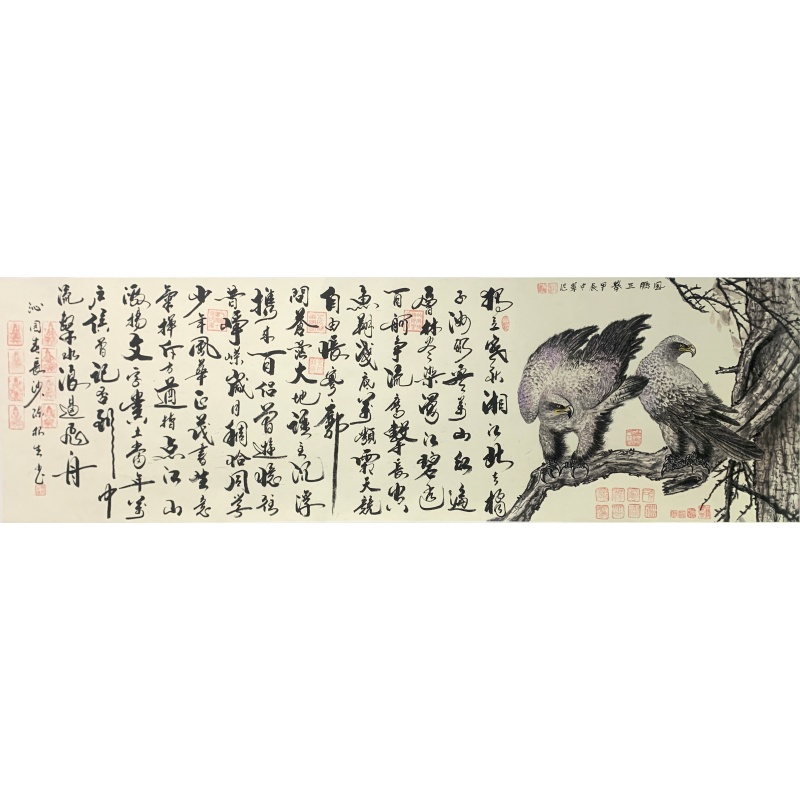 獨立寒秋湘江北去橘
子洲頭看萬山紅遍
層林盡染漫江碧透
百舸爭流鷹擊長空
魚翔淺底萬類霜天競
自由悵寥廓
問蒼茫大地誰主沉浮
攜來百侶曾遊憶往
昔崢嶸歲月稠恰同學
少年風華正茂書生意
氣揮斥方遒指点江山
激揚文字糞土當年萬
户侯曾記否到中
流擊水浪遏飛舟
沁园春長沙
甲辰